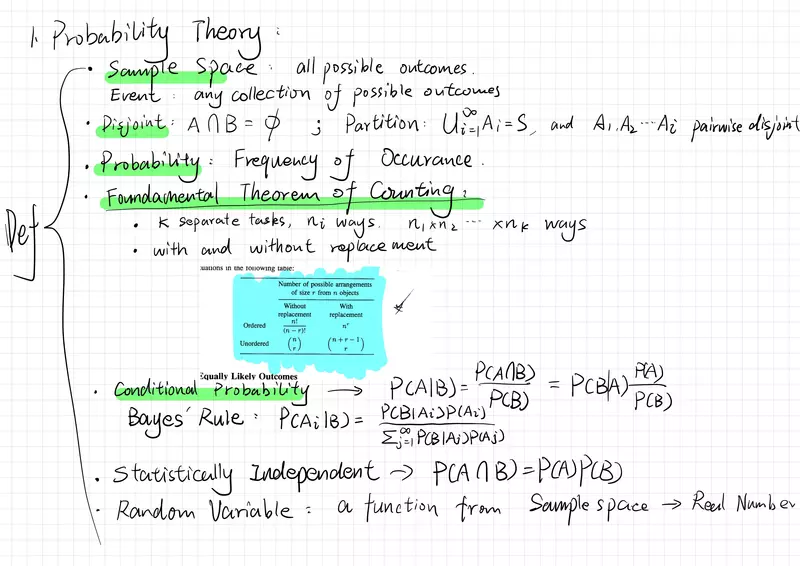 1. Probability Theory :
• Sample Space : all possible outcomes.
Event : any collection of possible outcomes
• Disjoint : A ∩ B = ϕ ; Partition : ∪_{i=1}^{∞} Ai = S, and A1, A2 ... Ai pairwise disjoint
• Probability : Frequency of Occurance.
• Foundamental Theorem of Counting :
• K separate tasks, ni ways. n1 × n2 ... × nk ways
• with and without replacement
Def
uations in the following table:
Number of possible arrangements
of size r from n objects
Without replacement With replacement
Ordered n!/(n − r)! n^r
Unordered (n r) (n + r − 1 r)
Equally Likely Outcomes
• Conditional Probability → P(A|B) = P(A∩B)/P(B) = P(B|A) P(A)/P(B)
Bayes' Rule : P(Ai|B) = P(B|Ai)P(Ai) / ∑_{j=1}^{∞} P(B|Aj)P(Aj)
• Statistically Independent → P(A ∩ B) = P(A)P(B)
• Random Variable : a function from Sample space → Real Number